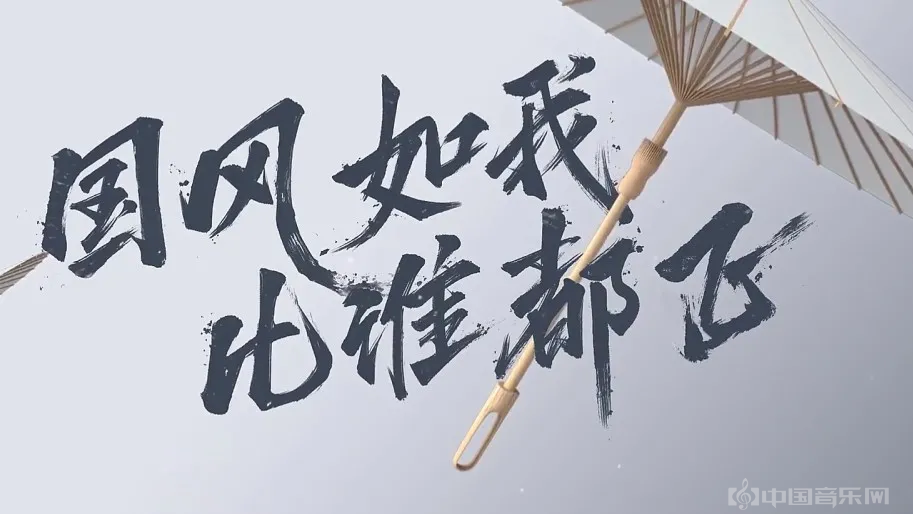 国风如我
比谁都飞
中国音乐网